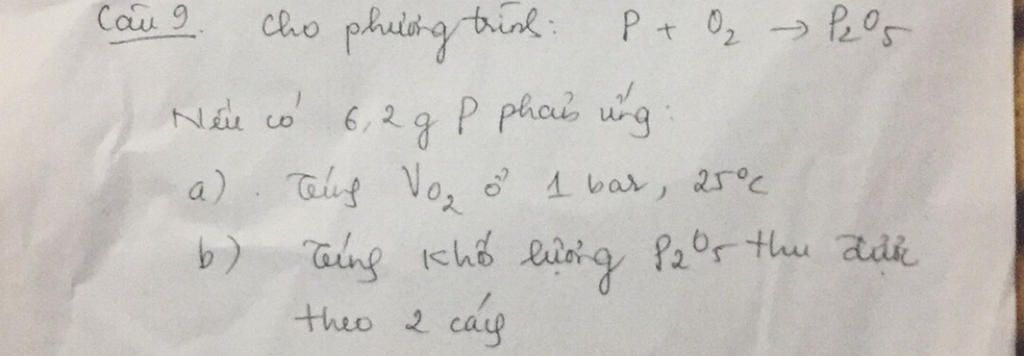 Câu 9. Cho phương trình: P + O₂ → P₂O₅
Nếu có 6,2 g P phản ứng:
a). Tính V O₂ ở 1 bar, 25°C
b) Tính khối lượng P₂O₅ thu được
theo 2 cách